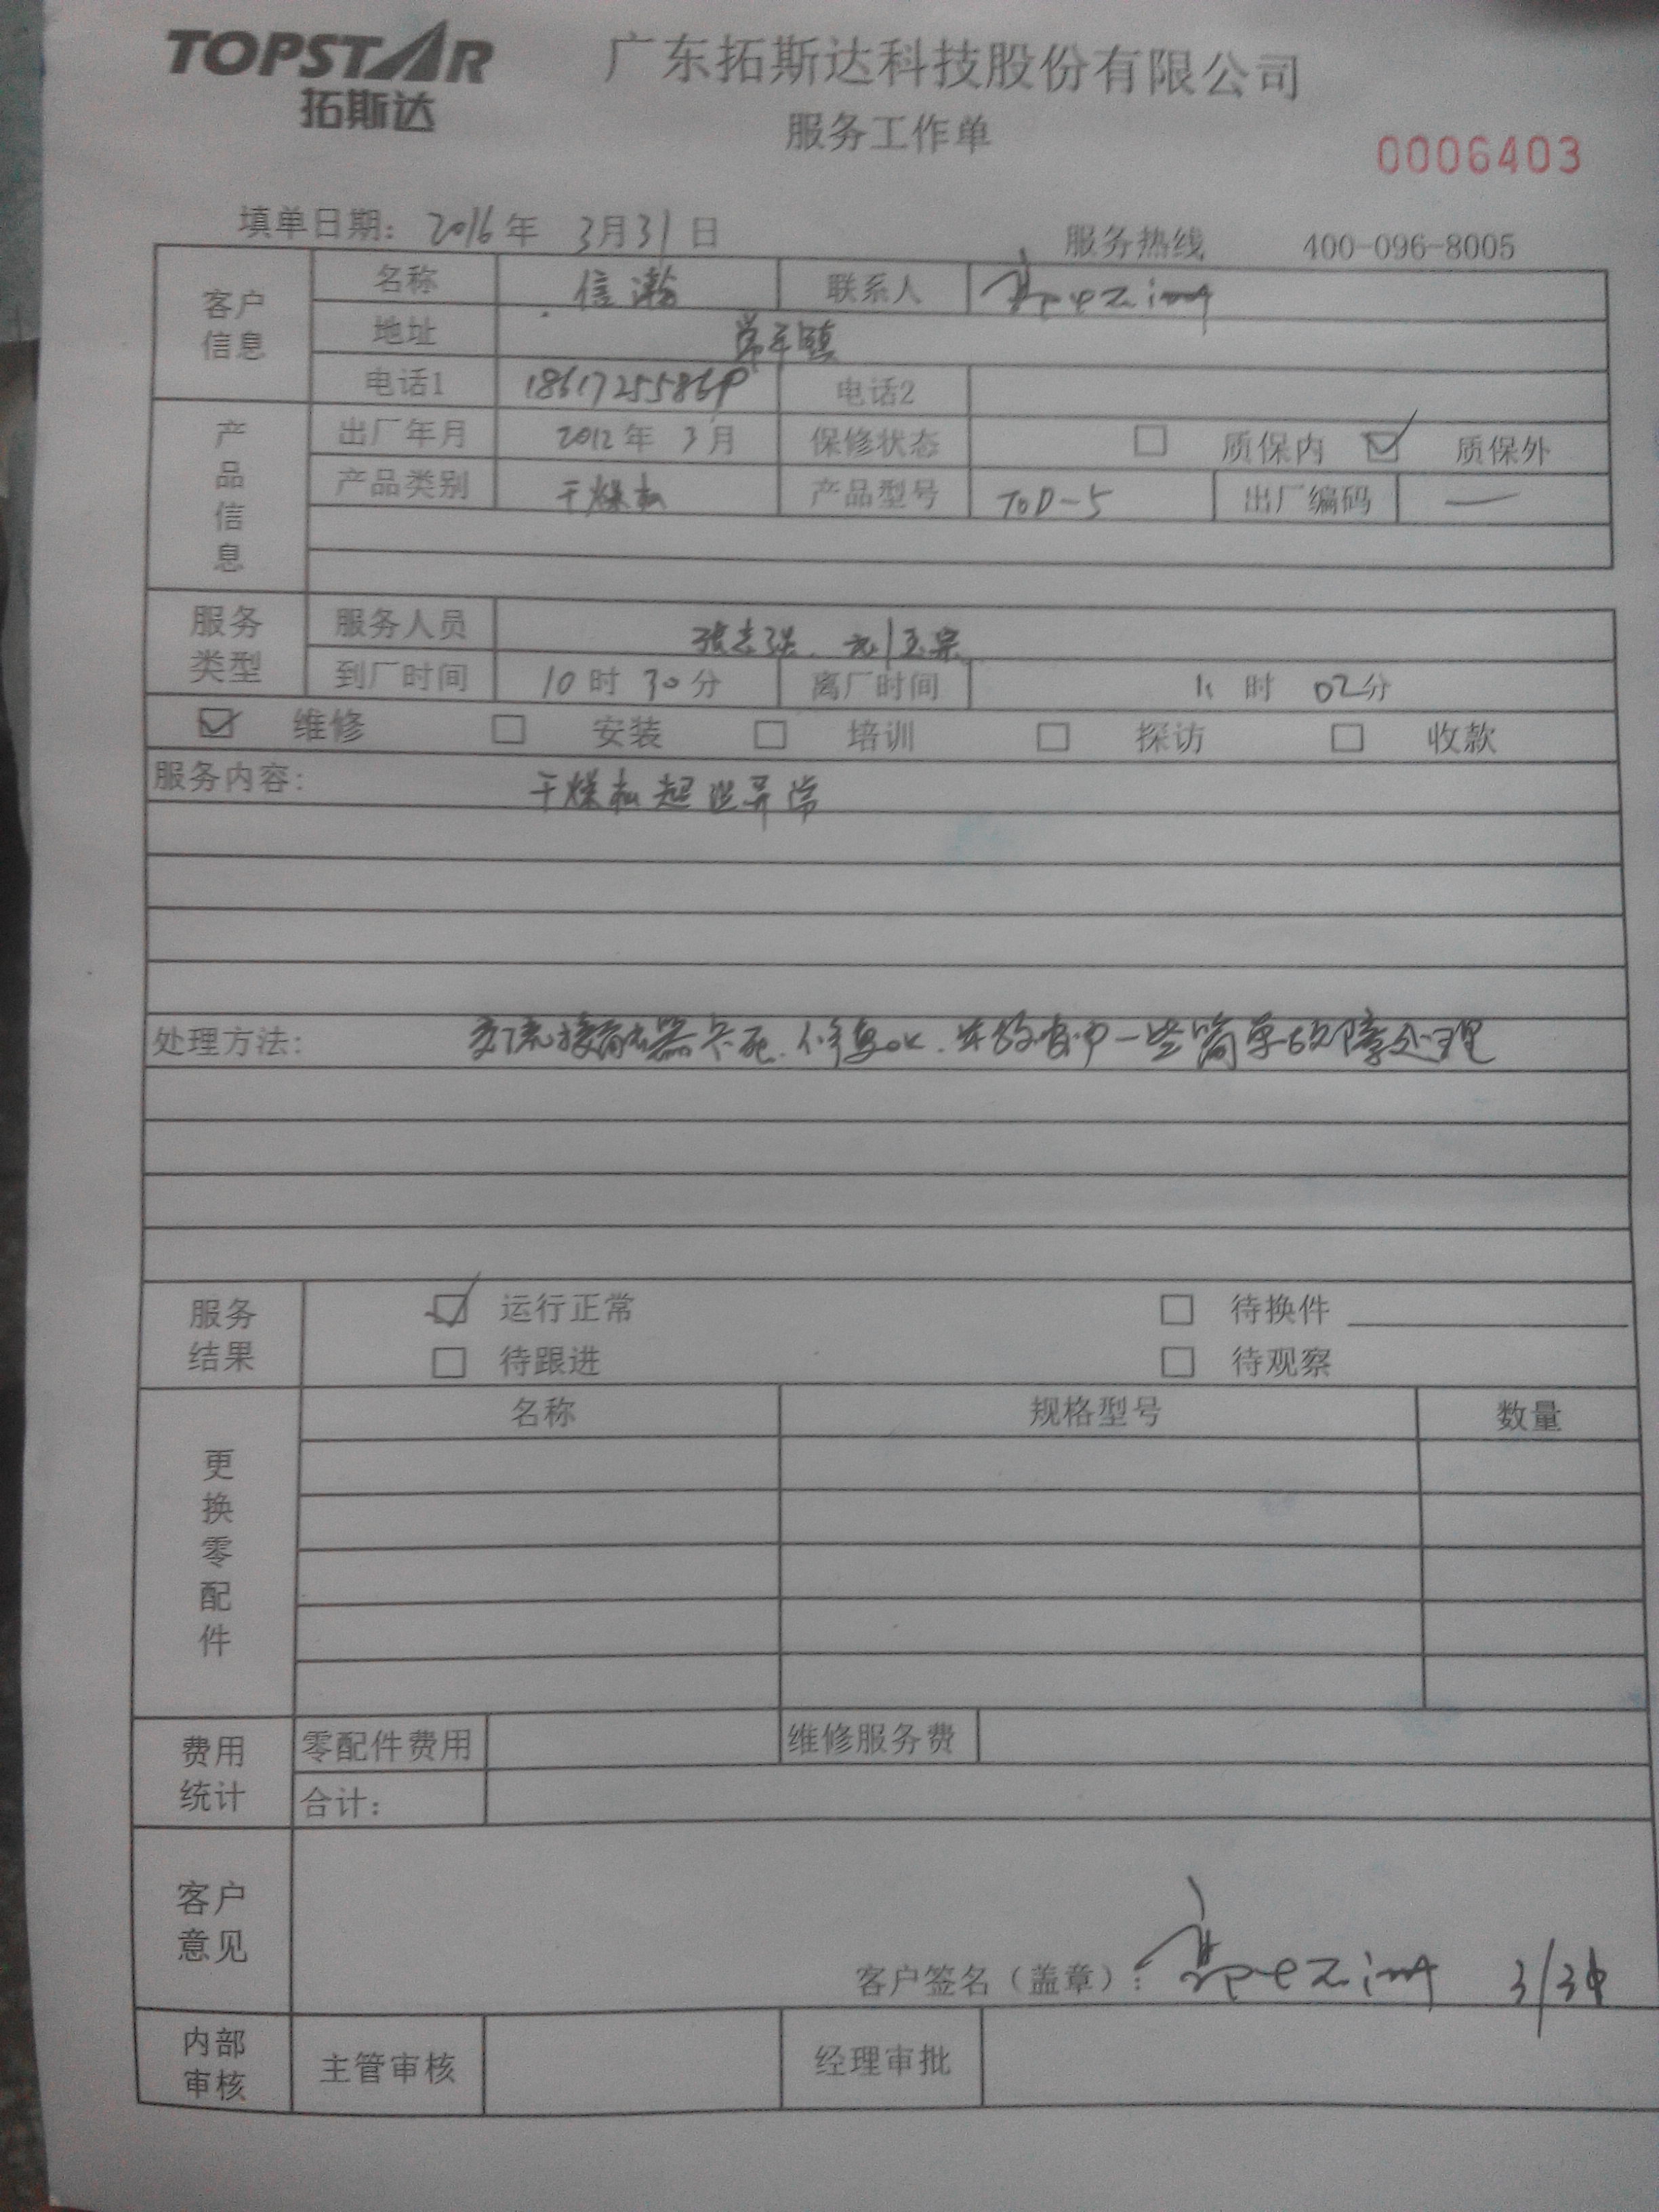 TOPSTAR
拓斯达
广东拓斯达科技股份有限公司
服务工作单
0006403
填单日期: 2016年 3月31日
服务热线 400-096-8005
客户信息
名称 信瀚 联系人
地址 常平镇
电话1 18617255869 电话2
产品信息
出厂年月 2012年 3月 保修状态 质保内 质保外
产品类别 干燥机 产品型号 TOD-5 出厂编码 —
服务类型
服务人员 张志强、刘玉宗
到厂时间 10时30分 离厂时间 时 02分
维修 安装 培训 探访 收款
服务内容: 干燥机起 异常
处理方法: 交流接触器卡死、修复ok、并 一些简单故障处理
服务结果
运行正常 待换件
待跟进 待观察
更换零配件
名称 规格型号 数量
费用统计
零配件费用 维修服务费
合计:
客户意见
客户签名(盖章):
内部审核
主管审核 经理审批